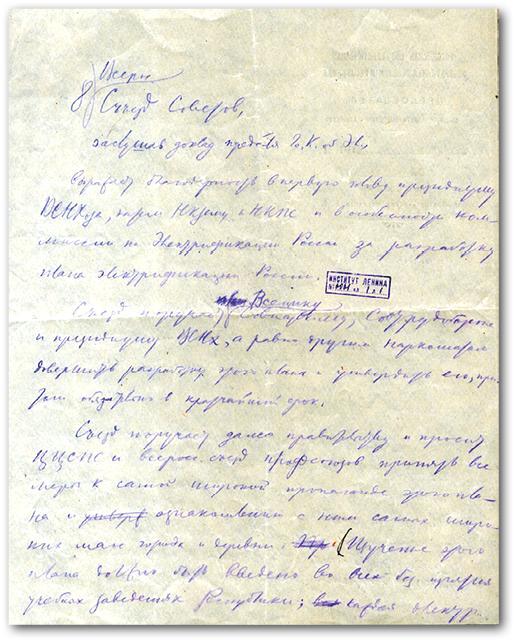 Всерос
8) Съезд Советов,
заслушав доклад предс-ля Г.К. об Эл.,
выражает благодарность в первую очередь президиуму
ВСНХоза, а также НКзему и НКПС и в особенности ком-
миссии по Электрификации России за разработку
плана электрификации России.
ИНСТИТУТ ЛЕНИНА
Всецику
Съезд поручает Совнаркому, Совтрудобороне
и президиуму ВСНХ, а равно другим наркоматам
довершить разработку этого плана и утвердить его, при-
том обязательно в кратчайший срок.
Съезд поручает далее правительству и просит
ВЦСПС и всеросс. съезд профсоюзов принять все
меры к самой широкой пропаганде этого пла-
на и ознакомлению с ним самых широ-
ких масс города и деревни. Изучение этого
плана должно быть введено во всех без изъятия
учебных заведениях республики;